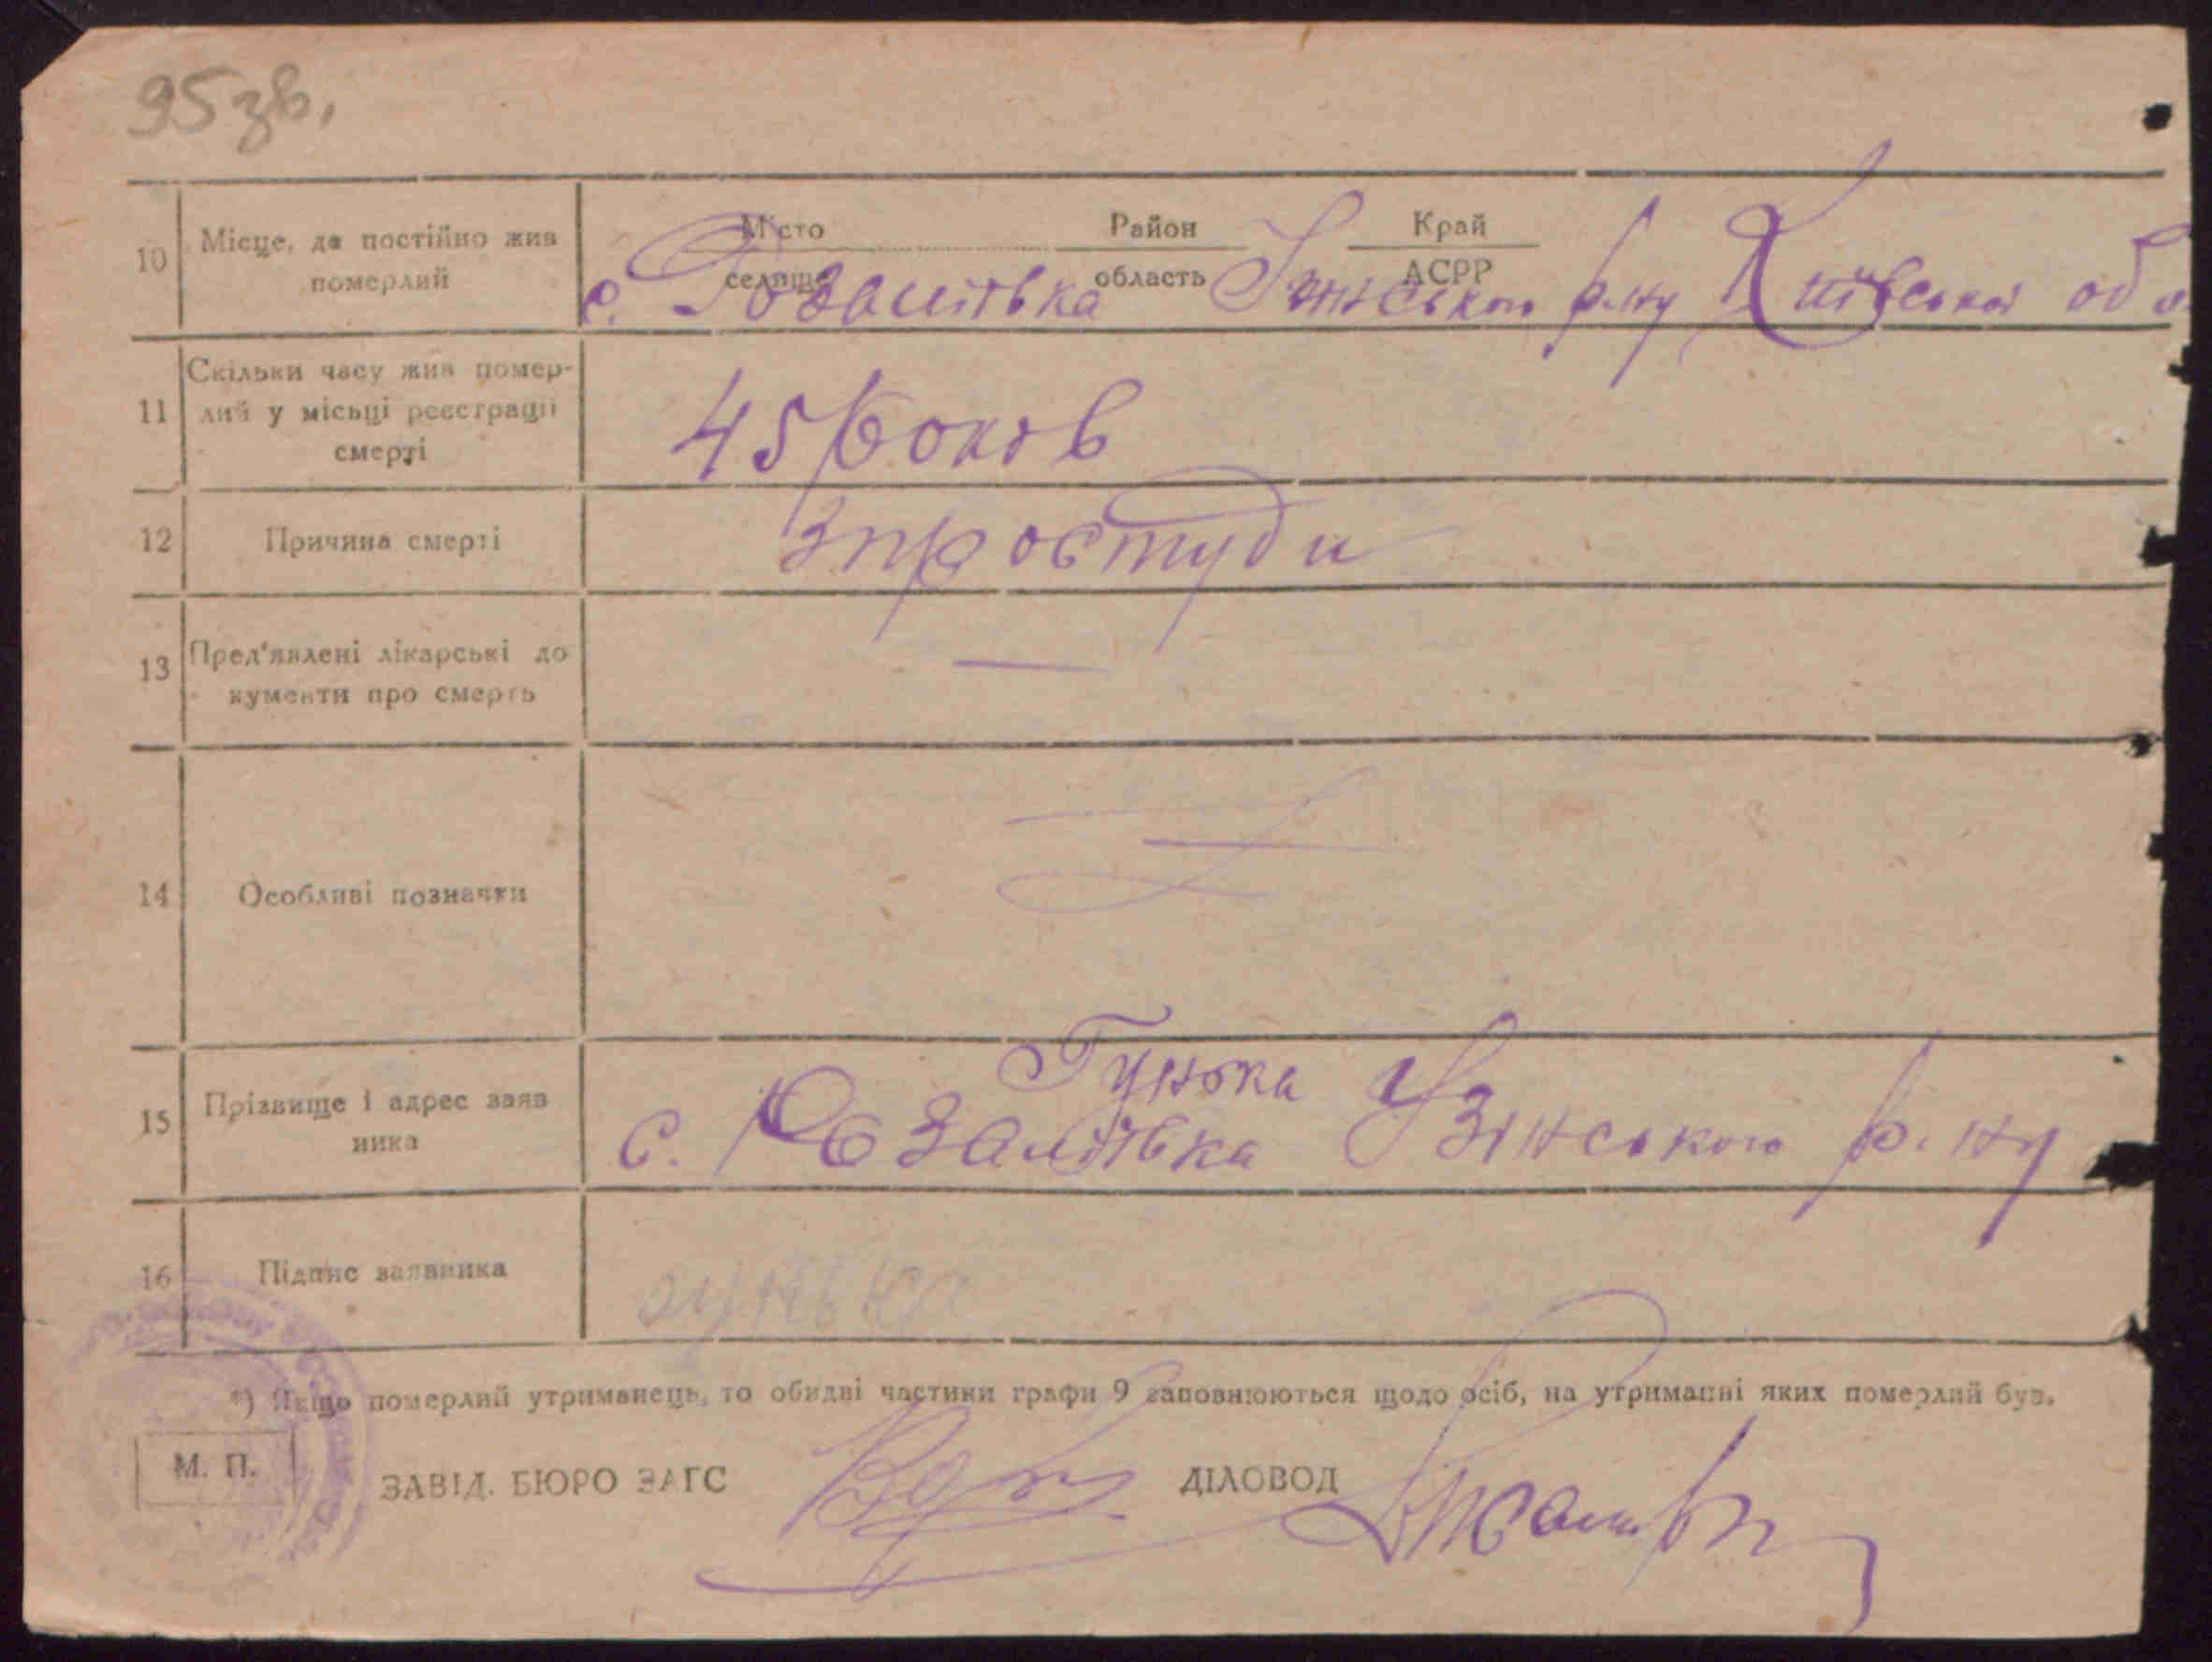 95 зв.
10 Місце, де постійно жив померлий
Місто селище Район область Край АСРР
с. Розалітвка р-ну Київської об
11 Скільки часу жив помер-
лий у місьці реєстрації
смерті
45 роков
12 Причина смерті
Зпростуди
13 Пред'явлені лікарські до
кументи про смерть
—
14 Особливі позначки
15 Прізвище і адрес заяв
ника
Гунька
с. Розалітвка Узінського р. ну
16 Підпис заявника
гунька
*) Якщо померлий утриманець, то обидві частини графи 9 заповнюються щодо осіб, на утриманні яких померлий був.
М. П.
ЗАВІД. БЮРО ЗАГС ДІЛОВОД